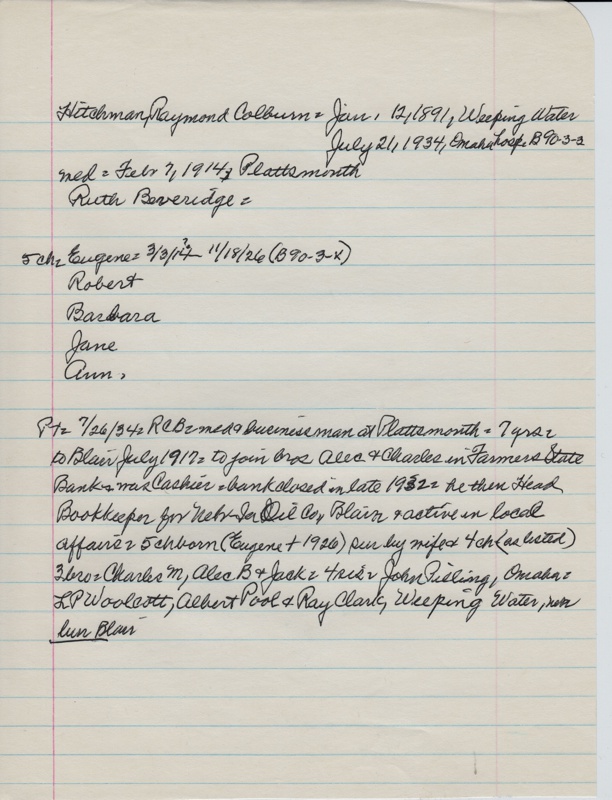 Hitchman, Raymond Colburn = Jan. 12, 1891, Weeping Water
July 21, 1934, Omaha Hosp. B90-3-2
med = Febr 7, 1914, Plattsmouth
Ruth Beveridge =
5 ch = Eugene = 3/3/17? 11/18/26 (B90-3-X)
Robert
Barbara
Jane
Ann,
Pt = 7/26/34 = RCB = med & business man at Plattsmouth = 7 yrs =
to Blair July 1917 = to join bros Alec & Charles in Farmers State
Bank & was Cashier = bank closed in late 1932 = he then Head
Bookkeeper for Nebr-Ia Oil Co, Blair & active in local
affairs = 5 ch born (Eugene + 1926) sur by wife & 4 ch (as listed)
3 bro = Charles M, Alec B & Jack = 4 sis = John Pilling, Omaha =
L P Woolcott, Albert Pool & Ray Clark, Weeping Water,
bur Blair